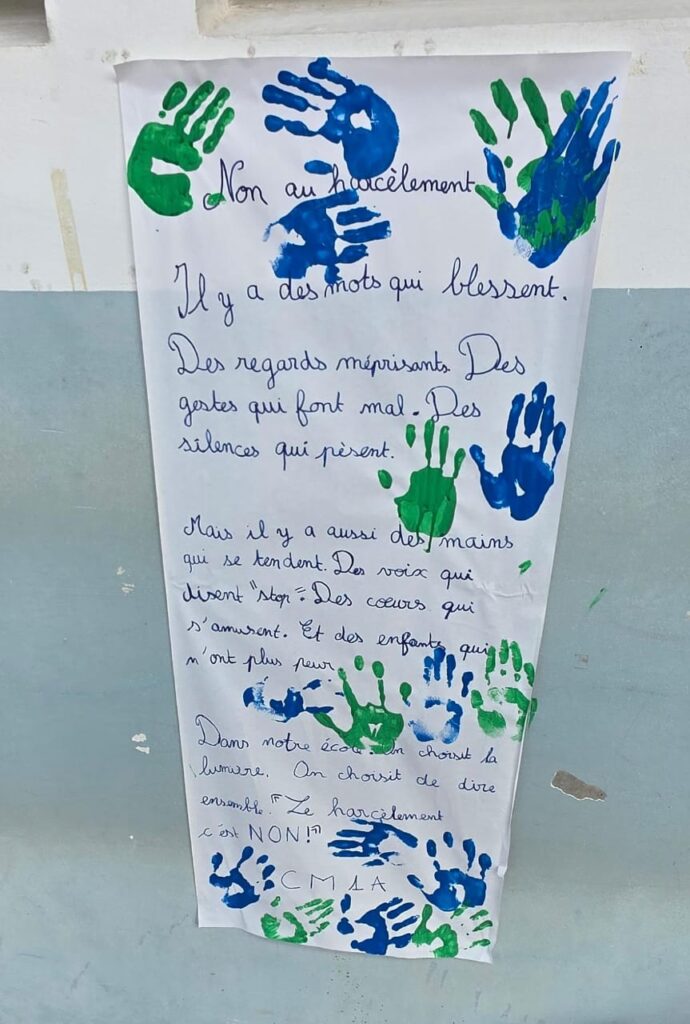 Non au harcèlement
Il y a des mots qui blessent.
Des regards méprisants. Des
gestes qui font mal. Des
silences qui pèsent.
Mais il y a aussi des mains
qui se tendent. Des voix qui
disent "stop". Des cœurs qui
s'amusent. Et des enfants qui
n'ont plus peur
Dans notre école. On choisit la
lumière. On choisit de dire
ensemble. "Le harcèlement
c'est NON!"
CM1A